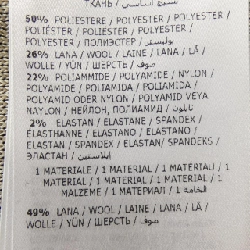 ТКАНЬ /
50% POLIESTERE / POLYESTER / POLYESTER /
POLIÉSTER / POLIESTER / POLYESTER /
POLYESTER / ПОЛИЭСТЕР / بوليستر
26% LANA / WOOL / LAINE / LANA / LÃ /
WOLLE / YÜN / ШЕРСТЬ / صوف
22% POLIAMMIDE / POLYAMIDE / NYLON /
POLYAMIDE / POLIAMIDA / POLIAMIDA /
POLYAMID ODER NYLON / POLYAMID VEYA
NAYLON / НЕЙЛОН, ПОЛИАМИД / نايلون
2% ELASTAN / ELASTANE / SPANDEX /
ELASTHANNE / ELASTANO / ELASTANO /
ELASTAN / SPANDEX / ELASTAN/ SPANDEKS /
ЭЛАСТАН /
1 MATERIALE / 1 MATERIAL / 1 MATERIAU / 1
MATERIAL / 1 MATERIAL / 1 MATERIAL / 1
MALZEME / 1 МАТЕРИАЛ / 1 الخامة
49% LANA / WOOL / LAINE / LANA / LÃ /
WOLLE / YÜN / ШЕРСТЬ / صوف